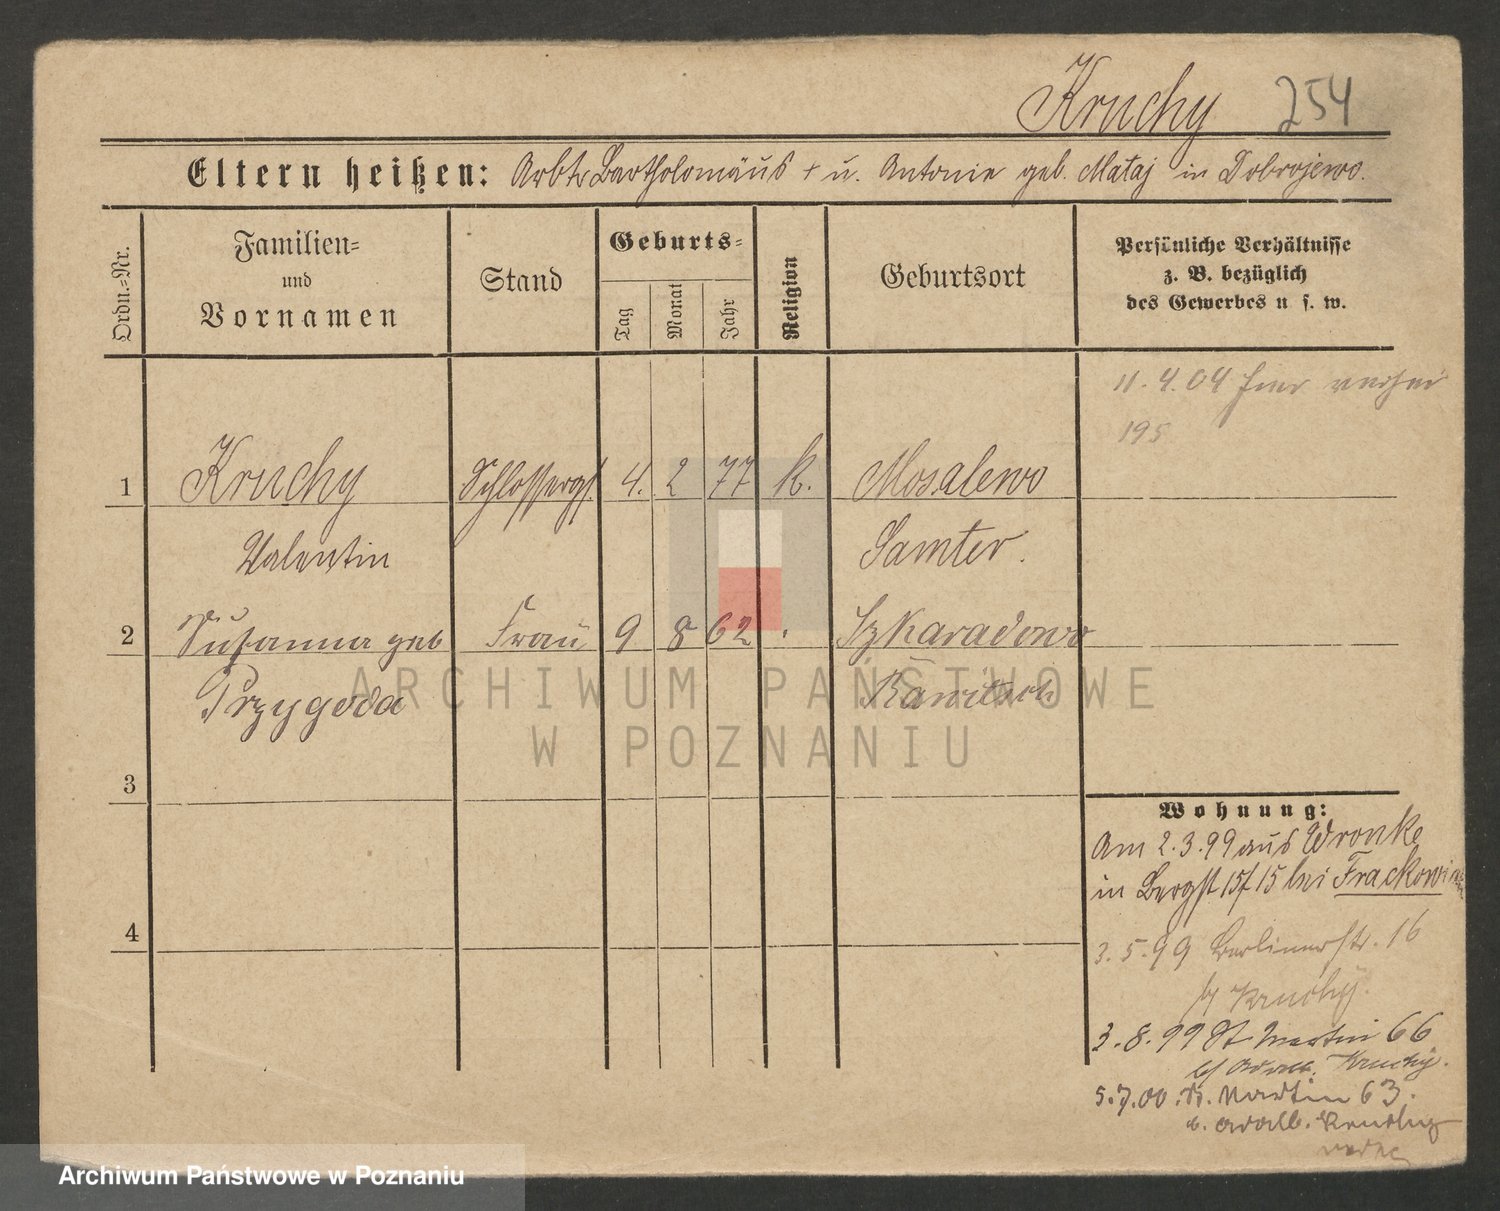 Kruchy 254
Eltern heißen: Arbtr Bartholomäus + u. Antonie geb. Mataj in Dobrojewo.
Ordn.-Nr.
Familien-
und
Vornamen
Stand
Geburts-
Tag
Monat
Jahr
Religion
Geburtsort
Persönliche Verhältnisse
z. B. bezüglich
des Gewerbes u s. w.
11.4.04 hier
195
1 Kruchy Schlosserges 4. 2 77 k. Mosalewo
Valentin Samter.
2 Susanna geb Frau 9 8 62 Szkaradowo
Przygoda Rawitsch
3
4
Wohnung:
Am 2.3.99 aus Wronke
in Bergst 15/15 bei Frackowiak
3.5.99 Berlinerstr. 16
b/ Kruchy.
3.8.99 St Martin 66
b/ Adalb. Kruchy.
5.7.00. St. Martin 63.
b. Adalb. Kruchy
ARCHIWUM PAŃSTWOWE
W POZNANIU
Archiwum Państwowe w Poznaniu